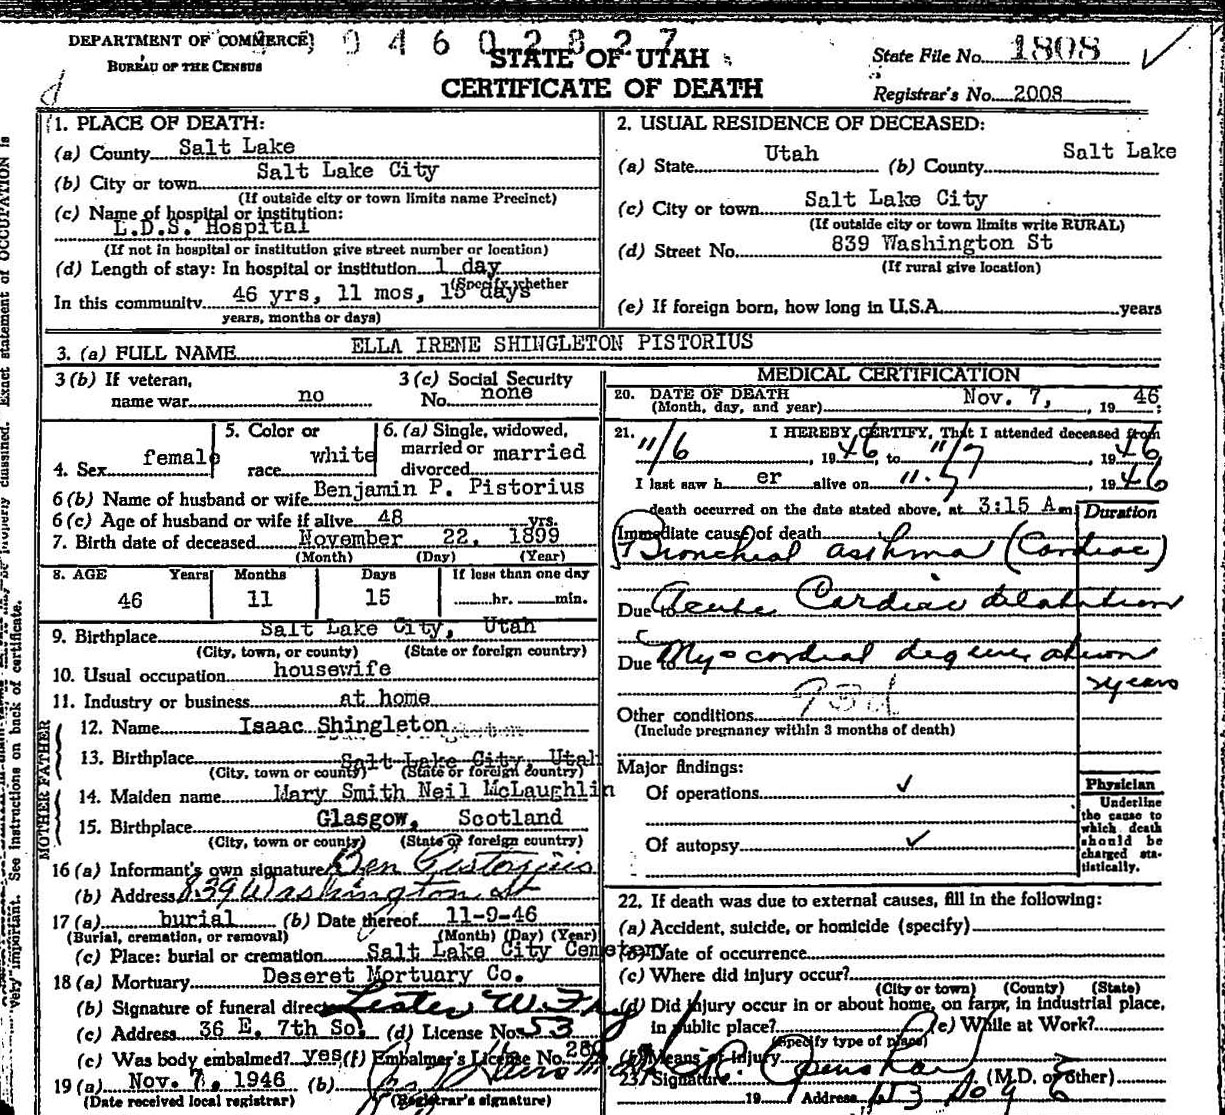 DEPARTMENT OF COMMERCE
BUREAU OF THE CENSUS
0 4 6 0 2 8 2 7
STATE OF UTAH
CERTIFICATE OF DEATH
State File No. 1808
Registrar's No. 2008
1. PLACE OF DEATH:
(a) County Salt Lake
(b) City or town Salt Lake City
(If outside city or town limits name Precinct)
(c) Name of hospital or institution:
L.D.S. Hospital
(If not in hospital or institution give street number or location)
(d) Length of stay: In hospital or institution 1 day
(Specify whether
In this community 46 yrs, 11 mos, 15 days
years, months or days)
2. USUAL RESIDENCE OF DECEASED:
(a) State Utah (b) County Salt Lake
(c) City or town Salt Lake City
(If outside city or town limits write RURAL)
(d) Street No. 839 Washington St
(If rural give location)
(e) If foreign born, how long in U.S.A. years
3. (a) FULL NAME ELLA IRENE SHINGLETON PISTORIUS
3 (b) If veteran, name war no
3 (c) Social Security No. none
4. Sex female
5. Color or race white
6. (a) Single, widowed, married or divorced married
6 (b) Name of husband or wife Benjamin P. Pistorius
6 (c) Age of husband or wife if alive 48 yrs.
7. Birth date of deceased November 22, 1899
(Month) (Day) (Year)
8. AGE Years Months Days If less than one day
46 11 15 hr. min.
9. Birthplace Salt Lake City, Utah
(City, town, or county) (State or foreign country)
10. Usual occupation housewife
11. Industry or business at home
FATHER
12. Name Isaac Shingleton
13. Birthplace Salt Lake City, Utah
(City, town or county) (State or foreign country)
MOTHER
14. Maiden name Mary Smith Neil McLaughlin
15. Birthplace Glasgow, Scotland
(City, town or county) (State or foreign country)
16 (a) Informant's own signature Ben Pistorius
(b) Address 839 Washington St
17 (a) burial (b) Date thereof 11-9-46
(Burial, cremation, or removal) (Month) (Day) (Year)
(c) Place: burial or cremation Salt Lake City Cemetery
18 (a) Mortuary Deseret Mortuary Co.
(b) Signature of funeral director Lester W.
(c) Address 36 E. 7th So. (d) License No. 53
(c) Was body embalmed? yes (f) Embalmer's License No.
19 (a) Nov. 7, 1946 (b)
(Date received local registrar) (Registrar's signature)
MEDICAL CERTIFICATION
20. DATE OF DEATH Nov. 7, 19 46
(Month, day, and year)
21. I HEREBY CERTIFY, That I attended deceased from
11/6, 1946, to 11/7, 1946
I last saw h er alive on 11-7, 1946
death occurred on the date stated above, at 3:15 A m
Duration
Immediate cause of death
Bronchial asthma (Cardiac)
Due to Acute Cardiac dilatation
Due to Myocardial degeneration
years
93d
Other conditions
(Include pregnancy within 3 months of death)
Major findings:
Of operations ✓
Of autopsy ✓
Physician
Underline the cause to which death should be charged statistically.
22. If death was due to external causes, fill in the following:
(a) Accident, suicide, or homicide (specify)
(b) Date of occurrence
(c) Where did injury occur?
(City or town) (County) (State)
(d) Did injury occur in or about home, on farm, in industrial place, in public place? (e) While at Work?
(Specify type of place)
(f) Means of injury
23. Signature (M.D. or other)
19 Address
Exact statement of OCCUPATION is
very important. See instructions on back of certificate.